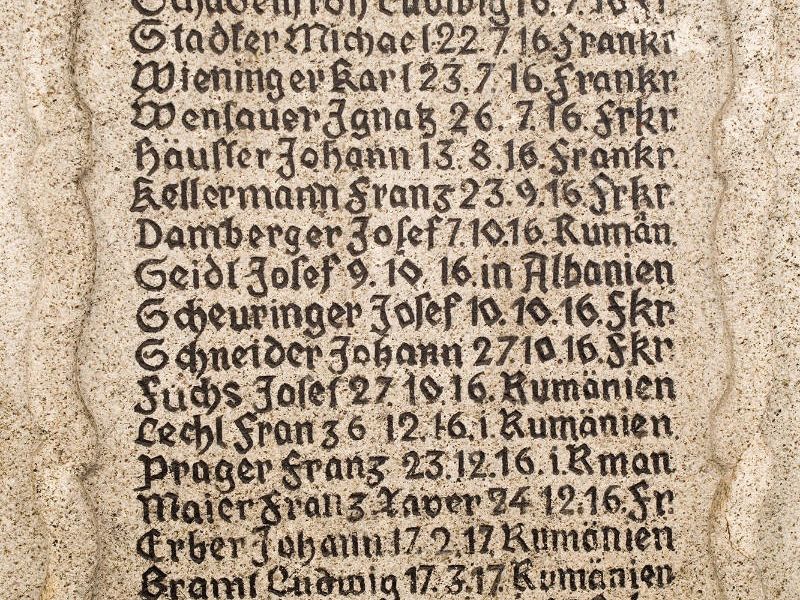 Ludwig 16.7.16 Fr.
Stadler Michael 22.7.16. Frankr.
Wieninger Karl 23.7.16. Frankr.
Wensauer Ignatz 26.7.16. Frkr.
Häusler Johann 13.8.16. Frankr.
Kellermann Franz 23.9.16. Frkr.
Damberger Josef 7.10.16. Rumän.
Seidl Josef 9.10.16. in Albanien
Scheuringer Josef 10.10.16. Fkr.
Schneider Johann 27.10.16. Fkr.
Fuchs Josef 27 10 16. Rumänien
Lechl Franz 6 12.16. i. Rumänien.
Prager Franz 23.12.16. i. Rman
Maier Franz Xaver 24 12.16. Fr.
Erber Johann 17.2.17. Rumänien
Braml Ludwig 17.3.17. Rumänien